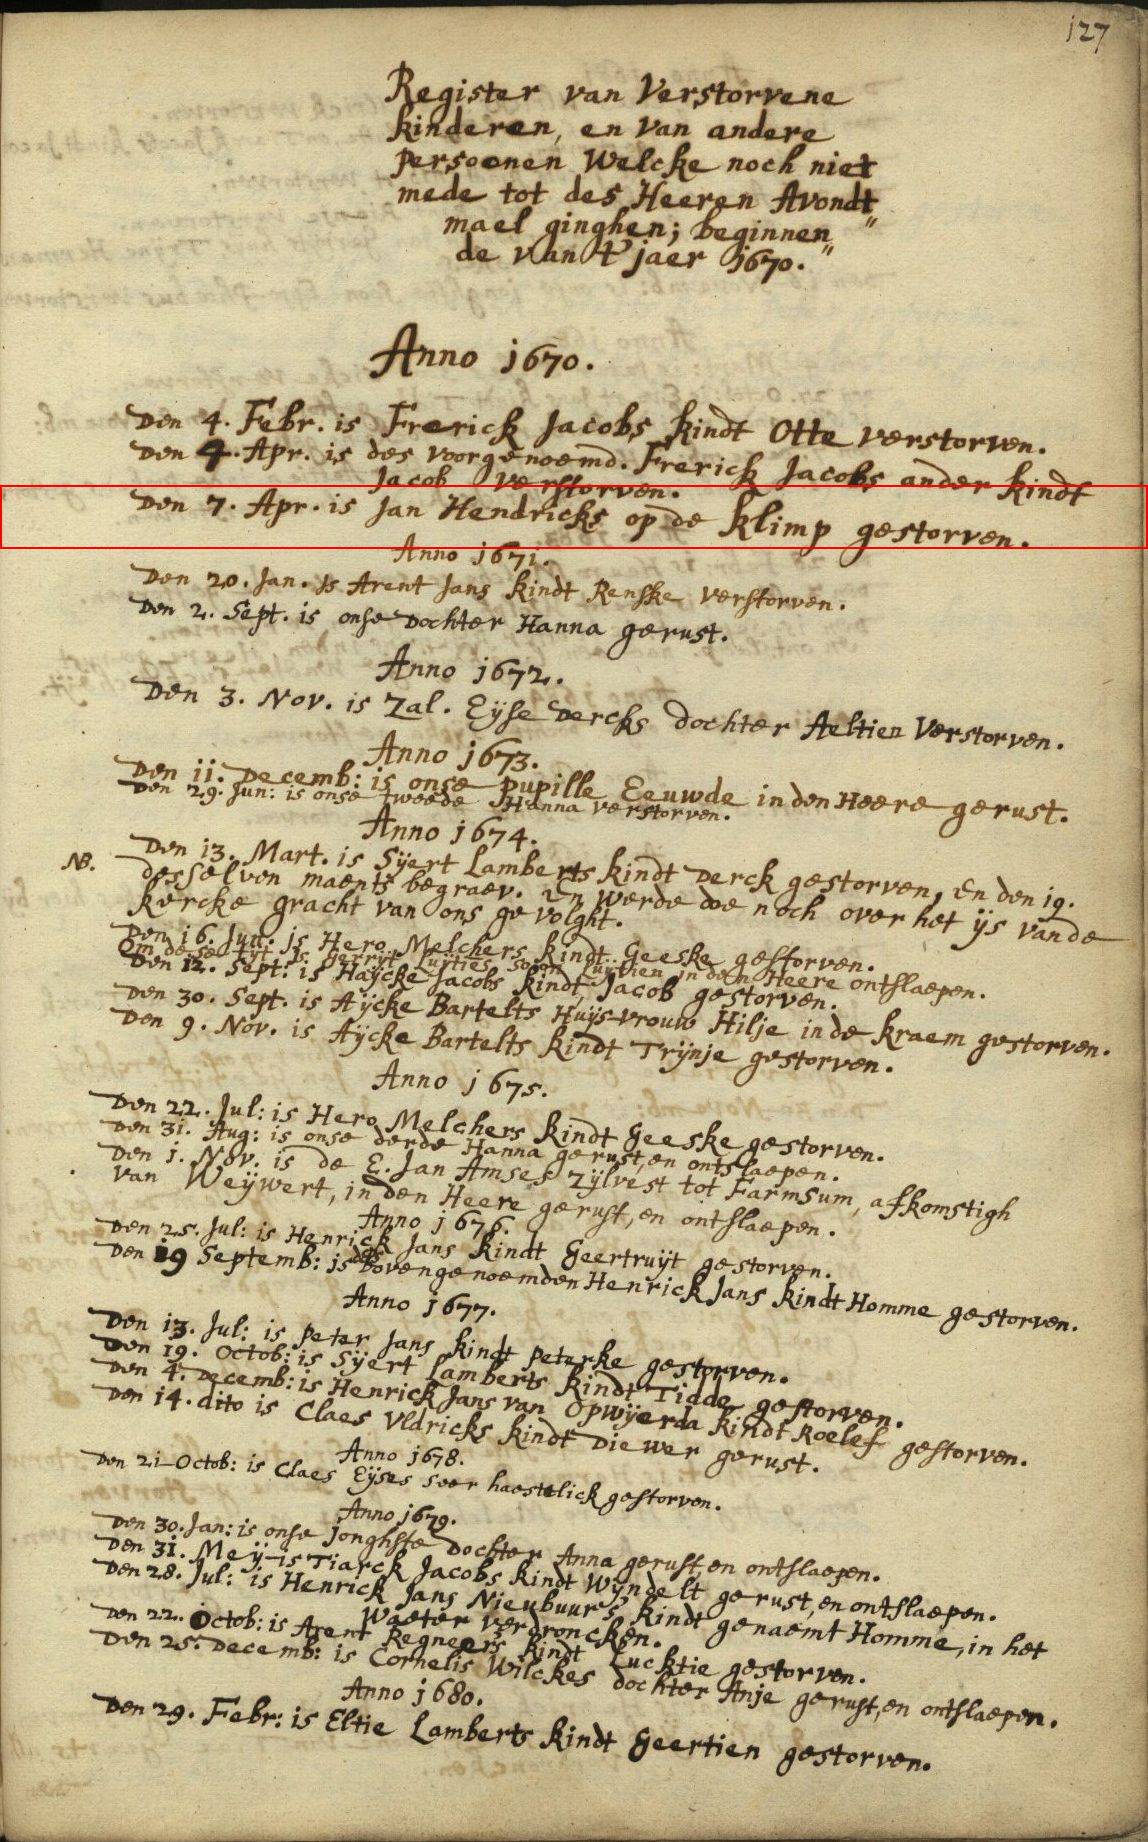 127
Register van Verstorvene
kinderen, en van andere
persoonen Welcke noch niet
mede tot des Heeren Avondt"
mael ginghen; beginnen"
de van 't jaer 1670.
Anno 1670.
Den 4. Febr. is Frerick Jacobs kindt Otte verstorven.
Den 4. Apr. is des voorgenoemd. Frerick Jacobs ander kindt
Jacob verstorven.
Den 7. Apr. is Jan Hendricks op de klimp gestorven.
Anno 1671.
Den 20. Jan. is Arent Jans kindt Renske verstorven.
Den 2. Sept. is onse Dochter Hanna gerust.
Anno 1672.
Den 3. Nov. is Zal. Eijse Dercks dochter Aeltien Verstorven.
Anno 1673.
Den 11. Decemb: is onse pupille Eeuwde in den Heere gerust.
Den 29. Jun: is onse tweede Hanna verstorven.
Anno 1674.
NB. Den 13. Mart. is Sijert Lamberts kindt Derck gestorven, En den 19.
desselven maents begraev. En werde doe noch over het ijs van de
kercke gracht van ons gevolght.
Den 16. Jun. is Hero Melchers kindt Geeske gestorven.
Om dese tijt is Gerrijt Luijties soon Luijtien in den Heere ontslaepen.
Den 12. Sept: is Haijcke Jacobs kindt Jacob gestorven.
Den 30. Sept. is Aijcke Bartelts Huijs-vrouw Hilje in de kraem gestorven.
Den 9. Nov. is Aijcke Bartelts kindt Trijnje gestorven.
Anno 1675.
Den 22. Jul: is Hero Melchers kindt Geeske gestorven.
Den 31. Aug: is onse derde Hanna gerust, en ontslaepen.
Den 1. Nov. is de E. Jan Amses Zijlvest tot Farmsum, afkomstigh
van Weijwert, in den Heere gerust, en ontslaepen.
Anno 1676.
Den 25. Jul: is Henrick Jans kindt Geertruijt gestorven.
Den 19 Septemb: is des bovengenoemden Henrick Jans kindt Homme gestorven.
Anno 1677.
Den 13. Jul: is Peter Jans kindt Peterke gestorven.
Den 19. Octob: is Sijert Lamberts kindt Tidde gestorven.
Den 4. Decemb: is Henrick Jans van Opwijerda kindt Roelef gestorven.
Den 14. dito is Claes Vldricks kindt Diewer gerust.
Anno 1678.
Den 21 Octob: is Claes Eijses seer haestelick gestorven.
Anno 1679.
Den 30. Jan: is onse Jonghste Dochter Anna gerust, en ontslaepen.
Den 31. Meij is Tiarck Jacobs kindt Wijndelt gerust, en ontslaepen.
Den 28. Jul: is Henrick Jans Nieubuurs kindt genaemt Homme, in het
Waeter verdroncken.
Den 22. Octob: is Arent Regneers kindt Lucktie gestorven.
Den 25. Decemb: is Cornelis Wilckes dochter Anje gerust, en ontslaepen.
Anno 1680.
Den 29. Febr: is Eltie Lamberts kindt Geertien gestorven.